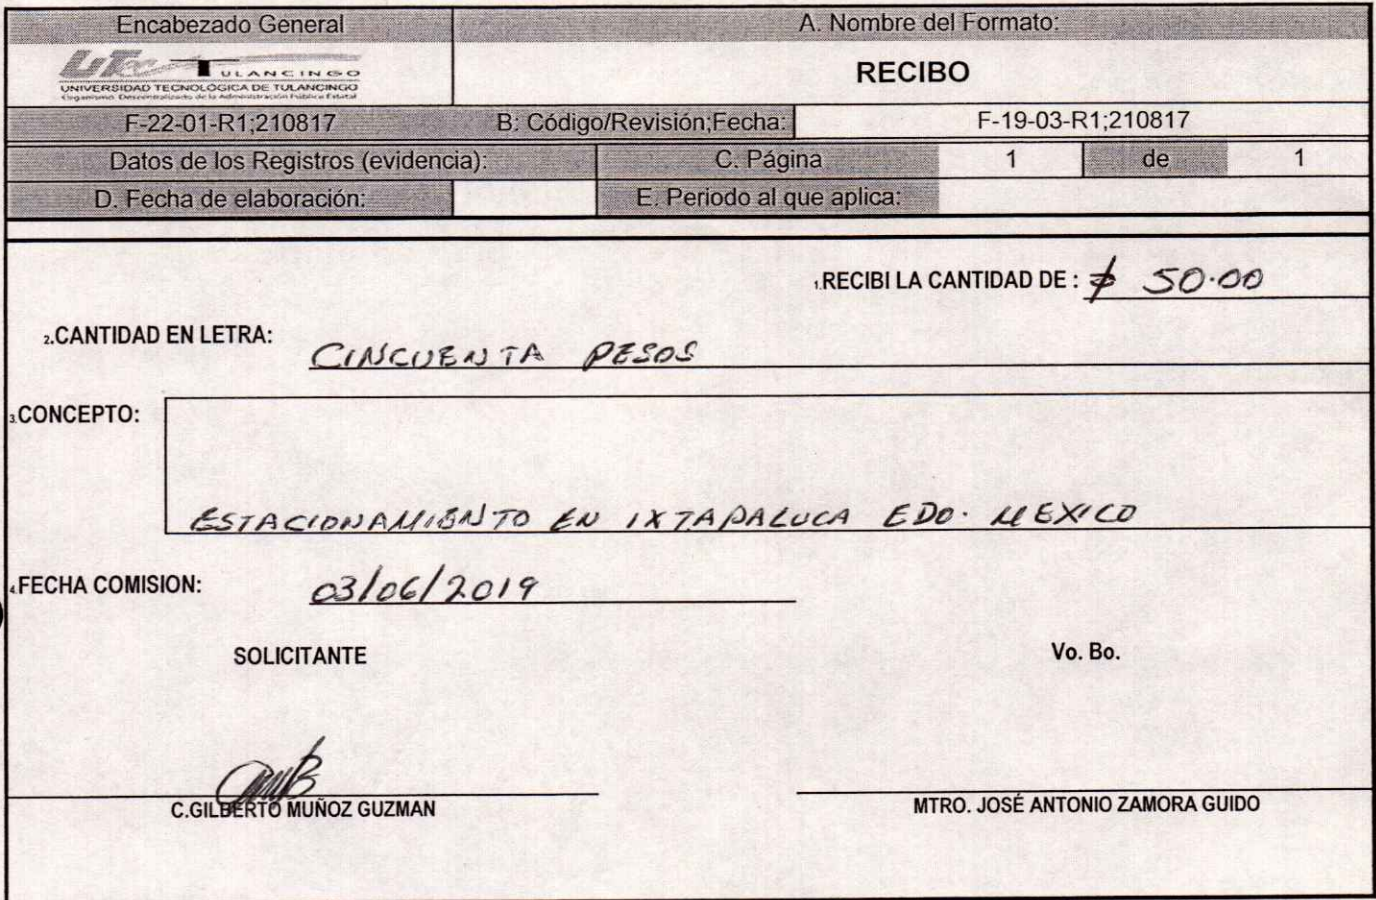 Encabezado General
A. Nombre del Formato:
UTec TULANCINGO
UNIVERSIDAD TECNOLÓGICA DE TULANCINGO
Organismo Descentralizado de la Administración Pública Estatal
RECIBO
F-22-01-R1;210817 B: Código/Revisión;Fecha: F-19-03-R1;210817
Datos de los Registros (evidencia): C. Página 1 de 1
D. Fecha de elaboración: E. Periodo al que aplica:
1.RECIBI LA CANTIDAD DE : $ 50.00
2.CANTIDAD EN LETRA: CINCUENTA PESOS
3.CONCEPTO:
ESTACIONAMIENTO EN IXTAPALUCA EDO. MEXICO
4.FECHA COMISION: 03/06/2019
SOLICITANTE Vo. Bo.
C.GILBERTO MUÑOZ GUZMAN MTRO. JOSÉ ANTONIO ZAMORA GUIDO